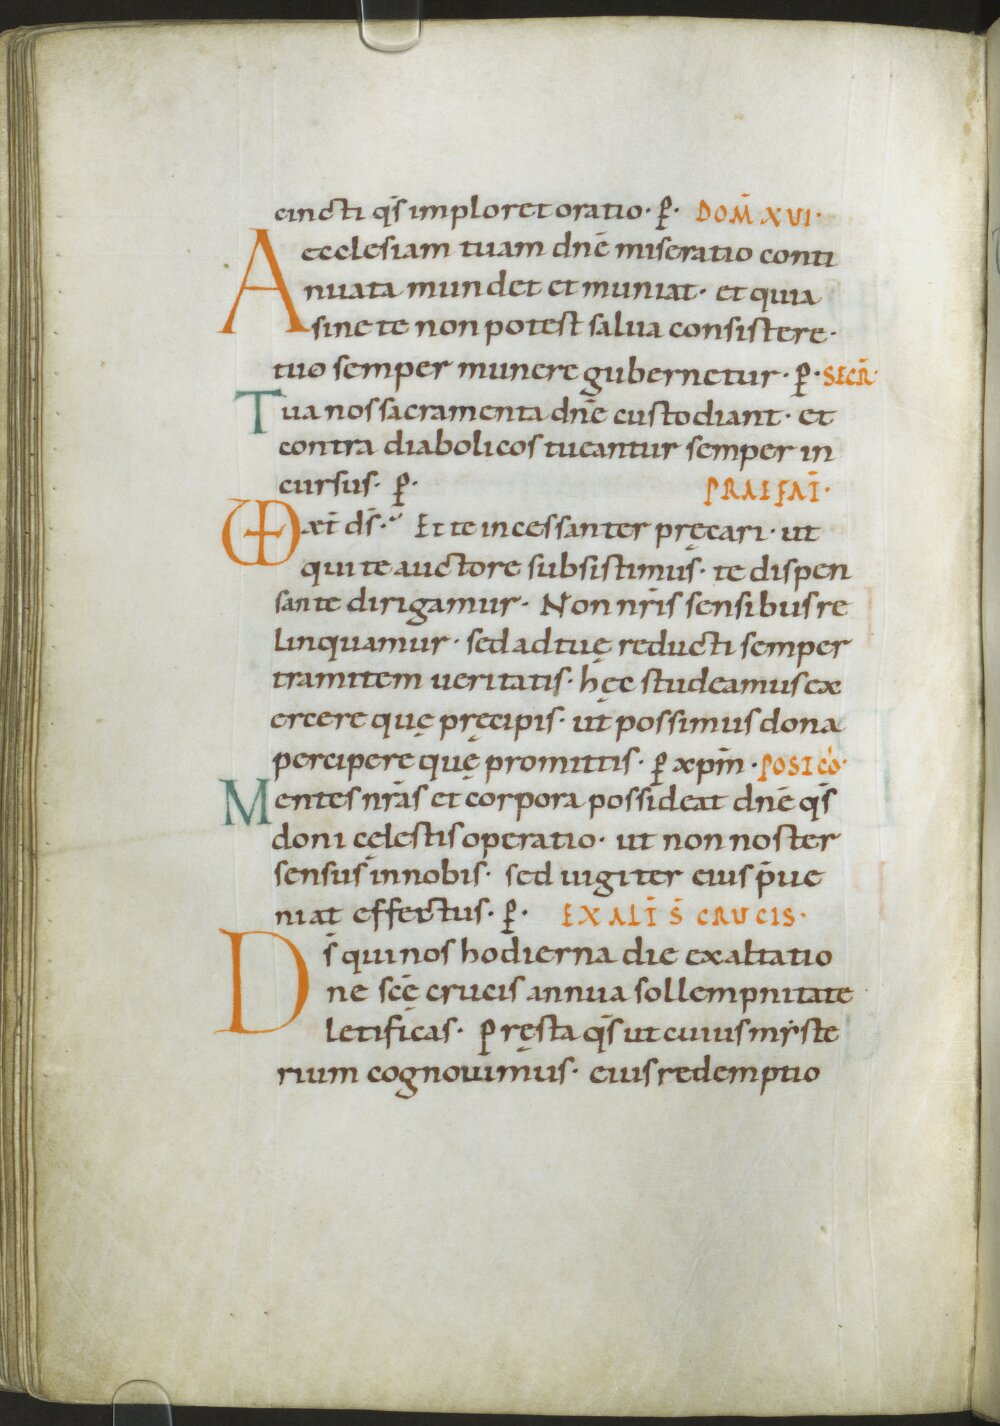 cincti q̄s imploret oratio· ꝑ· DOM̄ XVI·
A ecclesiam tuam dnē miseratio conti
nuata mundet et muniat· et quia
sine te non potest salua consistere·
tuo semper munere gubernetur· ꝑ· SECR̄
Tua nos sacramenta dnē custodiant· et
contra diabolicos tueantur semper in
cursus· ꝑ· PRAEFAT̄·
aet̄ ds̄· Et te incessanter pręcari· ut
qui te auctore subsistimus· te dispen
sante dirigamur· Non nr̄is sensibus re
linquamur· sed ad tuę reducti semper
tramitem ueritatis· hęc studeamus ex
ercere quę pręcipis· ut possimus dona
percipere quę promittis· ꝑ xpm̄· POST CŌ·
Mentes nr̄as et corpora possideat dnē q̄s
doni cęlestis operatio· ut non noster
sensus in nobis· sed iugiter eius p̄ue
niat effectus· ꝑ· EXALT̄ S̄ CRUCIS·
Ds̄ qui nos hodierna die exaltatio
nē scę̄ crucis annua sollempnitate
letificas· Pręsta q̄s ut cuius mẏste
rium cognouimus· eius redemptio